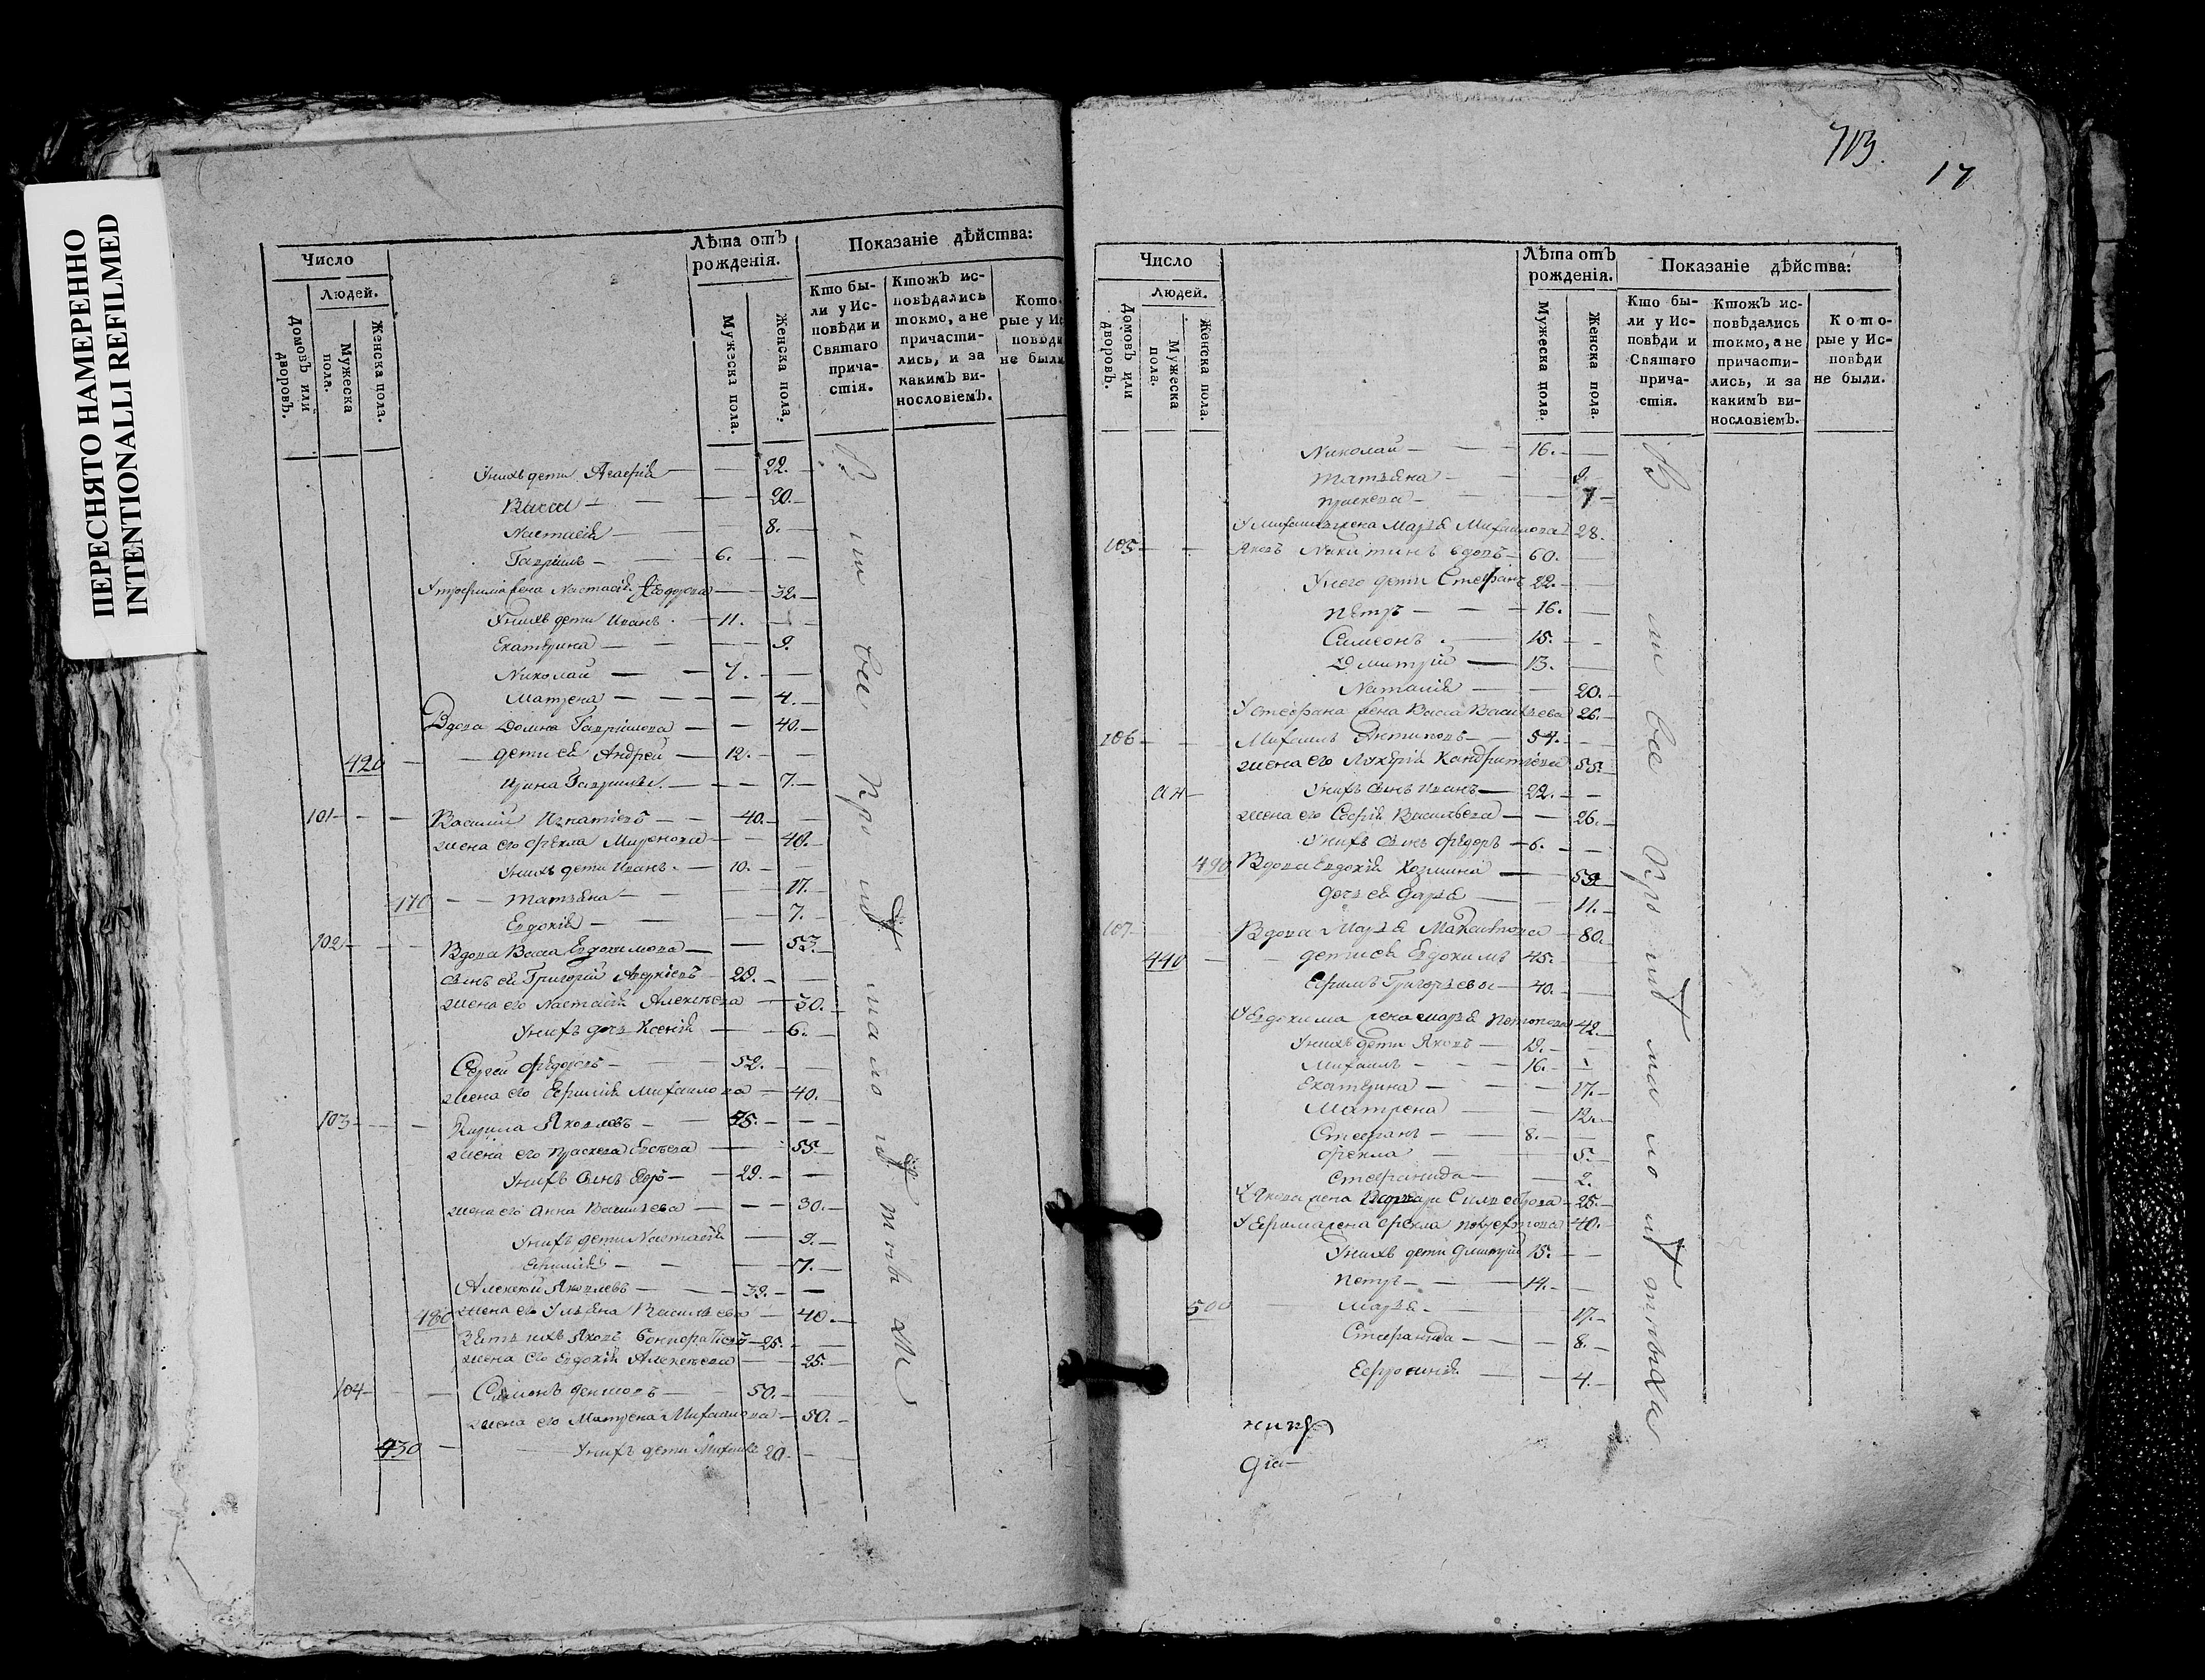 ПЕРЕСНЯТО НАМЕРЕННО
INTENTIONALLI REFILMED
Число
Людей.
Домовъ или дворовъ.
Мужеска пола.
Женска пола.
Лѣта отъ рожденія.
Мужеска пола.
Женска пола.
Показаніе дѣйства:
Кто бы-
ли у Ис-
повѣди и
Святаго
прича-
стія.
Ктожъ ис-
повѣдались
токмо, а не
причасти-
лись, и за
какимъ ви-
нословіемъ.
Кото-
рые у Ис
повѣди
не были
Унихъ дети Агафія 22.
Васса 20.
Настасія 8.
Гавріилъ 6.
Утрофима жена Настасія Ѳеодорова 32.
Унихъ дети Иванъ 11.
Екатерина 9.
Николай 7.
Матрена 4.
Вдова Домна Гавриилова 40.
420 дети ея Андрей 12.
Ирина Гавриилы 7.
101 Василий Игнатіевъ 40.
жена его Фекла Миронова 40.
Унихъ дети Иванъ 10.
470 Татьяна 17.
Евдокія 7.
102 Вдова Васса Евдокимова 53.
сынъ ея Григорій 29.
жена его Настасія Алексѣева 30.
Унихъ дочь Ксенія 6.
Сергей Федоровъ 52.
жена его Ефимія Михаилова 40.
103 Кирила Яковлевъ 45.
жена его Праскева Евсѣева 55.
Унихъ сынъ Егоръ 29.
жена его Анна Васильева 30.
Унихъ дети Настасія 9.
Ефимія 7.
Алексѣй Яковлевъ 39.
480 жена его Ульяна Васильева 40.
Зять ихъ Яковъ 25.
жена его Евдокія Алексѣева 25.
104 Симонъ 50.
жена его Матрена Михаилова 50.
430 Унихъ дети Михаилъ 20.
713.
17
Число
Людей.
Домовъ или дворовъ.
Мужеска пола.
Женска пола.
Лѣта отъ рожденія.
Мужеска пола.
Женска пола.
Показаніе дѣйства:
Кто бы-
ли у Ис-
повѣди и
Святаго
прича-
стія.
Ктожъ ис-
повѣдались
токмо, а не
причасти-
лись, и за
какимъ ви-
нословіемъ.
Кото-
рые у Ис-
повѣди
не были.
Николай 16.
Татьяна 9.
Праскева 7
Умихаила жена Марья Михаилова 28.
105 Яковъ Никитинъ вдовъ 60.
Унего дети Стефанъ 22.
Петръ 16.
Симеонъ 15.
Дмитрій 13.
Наталія 20.
Устефана жена Васса Васильева 26.
106 Михаилъ Антиповъ 54.
жена его Лукерія Кандратіева 55.
Унихъ сынъ Иванъ 22.
жена его Софія Васильева 26.
Унихъ сынъ Федоръ 6.
490 Вдова Евдокія Козмина 59
дочь ея Дарья 11.
107 Вдова Марья Максимова 80.
440 дети ея Евдокимъ 45.
Ефимъ Григорьевы 40.
Уевдокима жена марья 42.
Унихъ дети Яковъ 19.
Михаилъ 16.
Екатерина 17.
Матрена 12.
Стефанъ 8.
Фекла 5.
Стефанида 2.
Уякова жена Варвара 25.
Уефима жена Фекла 40.
Унихъ дети Дмитрій 15.
Петръ 14.
500 Марья 17.
Стефанида 8.
Ефросинія 4.